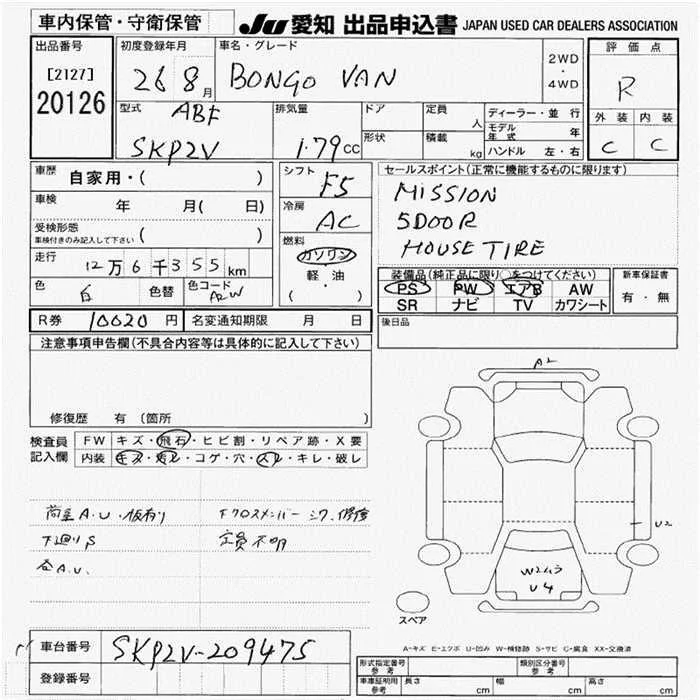 車内保管・守衛保管
JU 愛知 出品申込書 JAPAN USED CAR DEALERS ASSOCIATION
出品番号
[2127]
20126
初度登録年月
26 8月
車名・グレード
BONGO VAN
2WD
・
4WD
評価点
R
外装 内装
C C
型式
ABF
SKP2V
排気量
1.79CC
ドア
形状
定員 人
積載 kg
ディーラー・並行
モデル年式 年
ハンドル 左・右
車歴
自家用・( )
車検
年 月( 日)
受検形態
車検付きのみ記入して下さい ( )
走行
12万6千355km
色
白
色替
色コード
A2W
シフト
F5
冷房
AC
燃料
ガソリン
・
軽・油
( )
セールスポイント(正常に機能するものに限ります)
MISSION
5DOOR
HOUSE TIRE
装備品(純正品に限り○をつけてください)
PS PW エアB AW
SR ナビ TV カワシート
新車保証書
有・無
後日品
R券 10020円 名変通知期限 月 日
注意事項申告欄(不具合内容等は具体的に記入して下さい)
修復歴 有(箇所 )
検査員
記入欄
FW キズ・飛石・ヒビ割・リペア跡・X要
内装 キズ・汚レ・コゲ・穴・スレ・キレ・破レ
荷室A.U・板有り
下廻りS
仝A.U.
Fクロスメンバー シワ、修復
定員不明
A2
U2
W2ムラ
U4
スペア
A-キズ E-エクボ U-凹み W-補修跡 S-サビ C-腐食 XX-交換済
車台番号
SKP2V-209475
登録番号
形式指定番号
参考
類別区分番号
参考
車庫証明用
参考
長さ cm 幅 cm 高さ cm